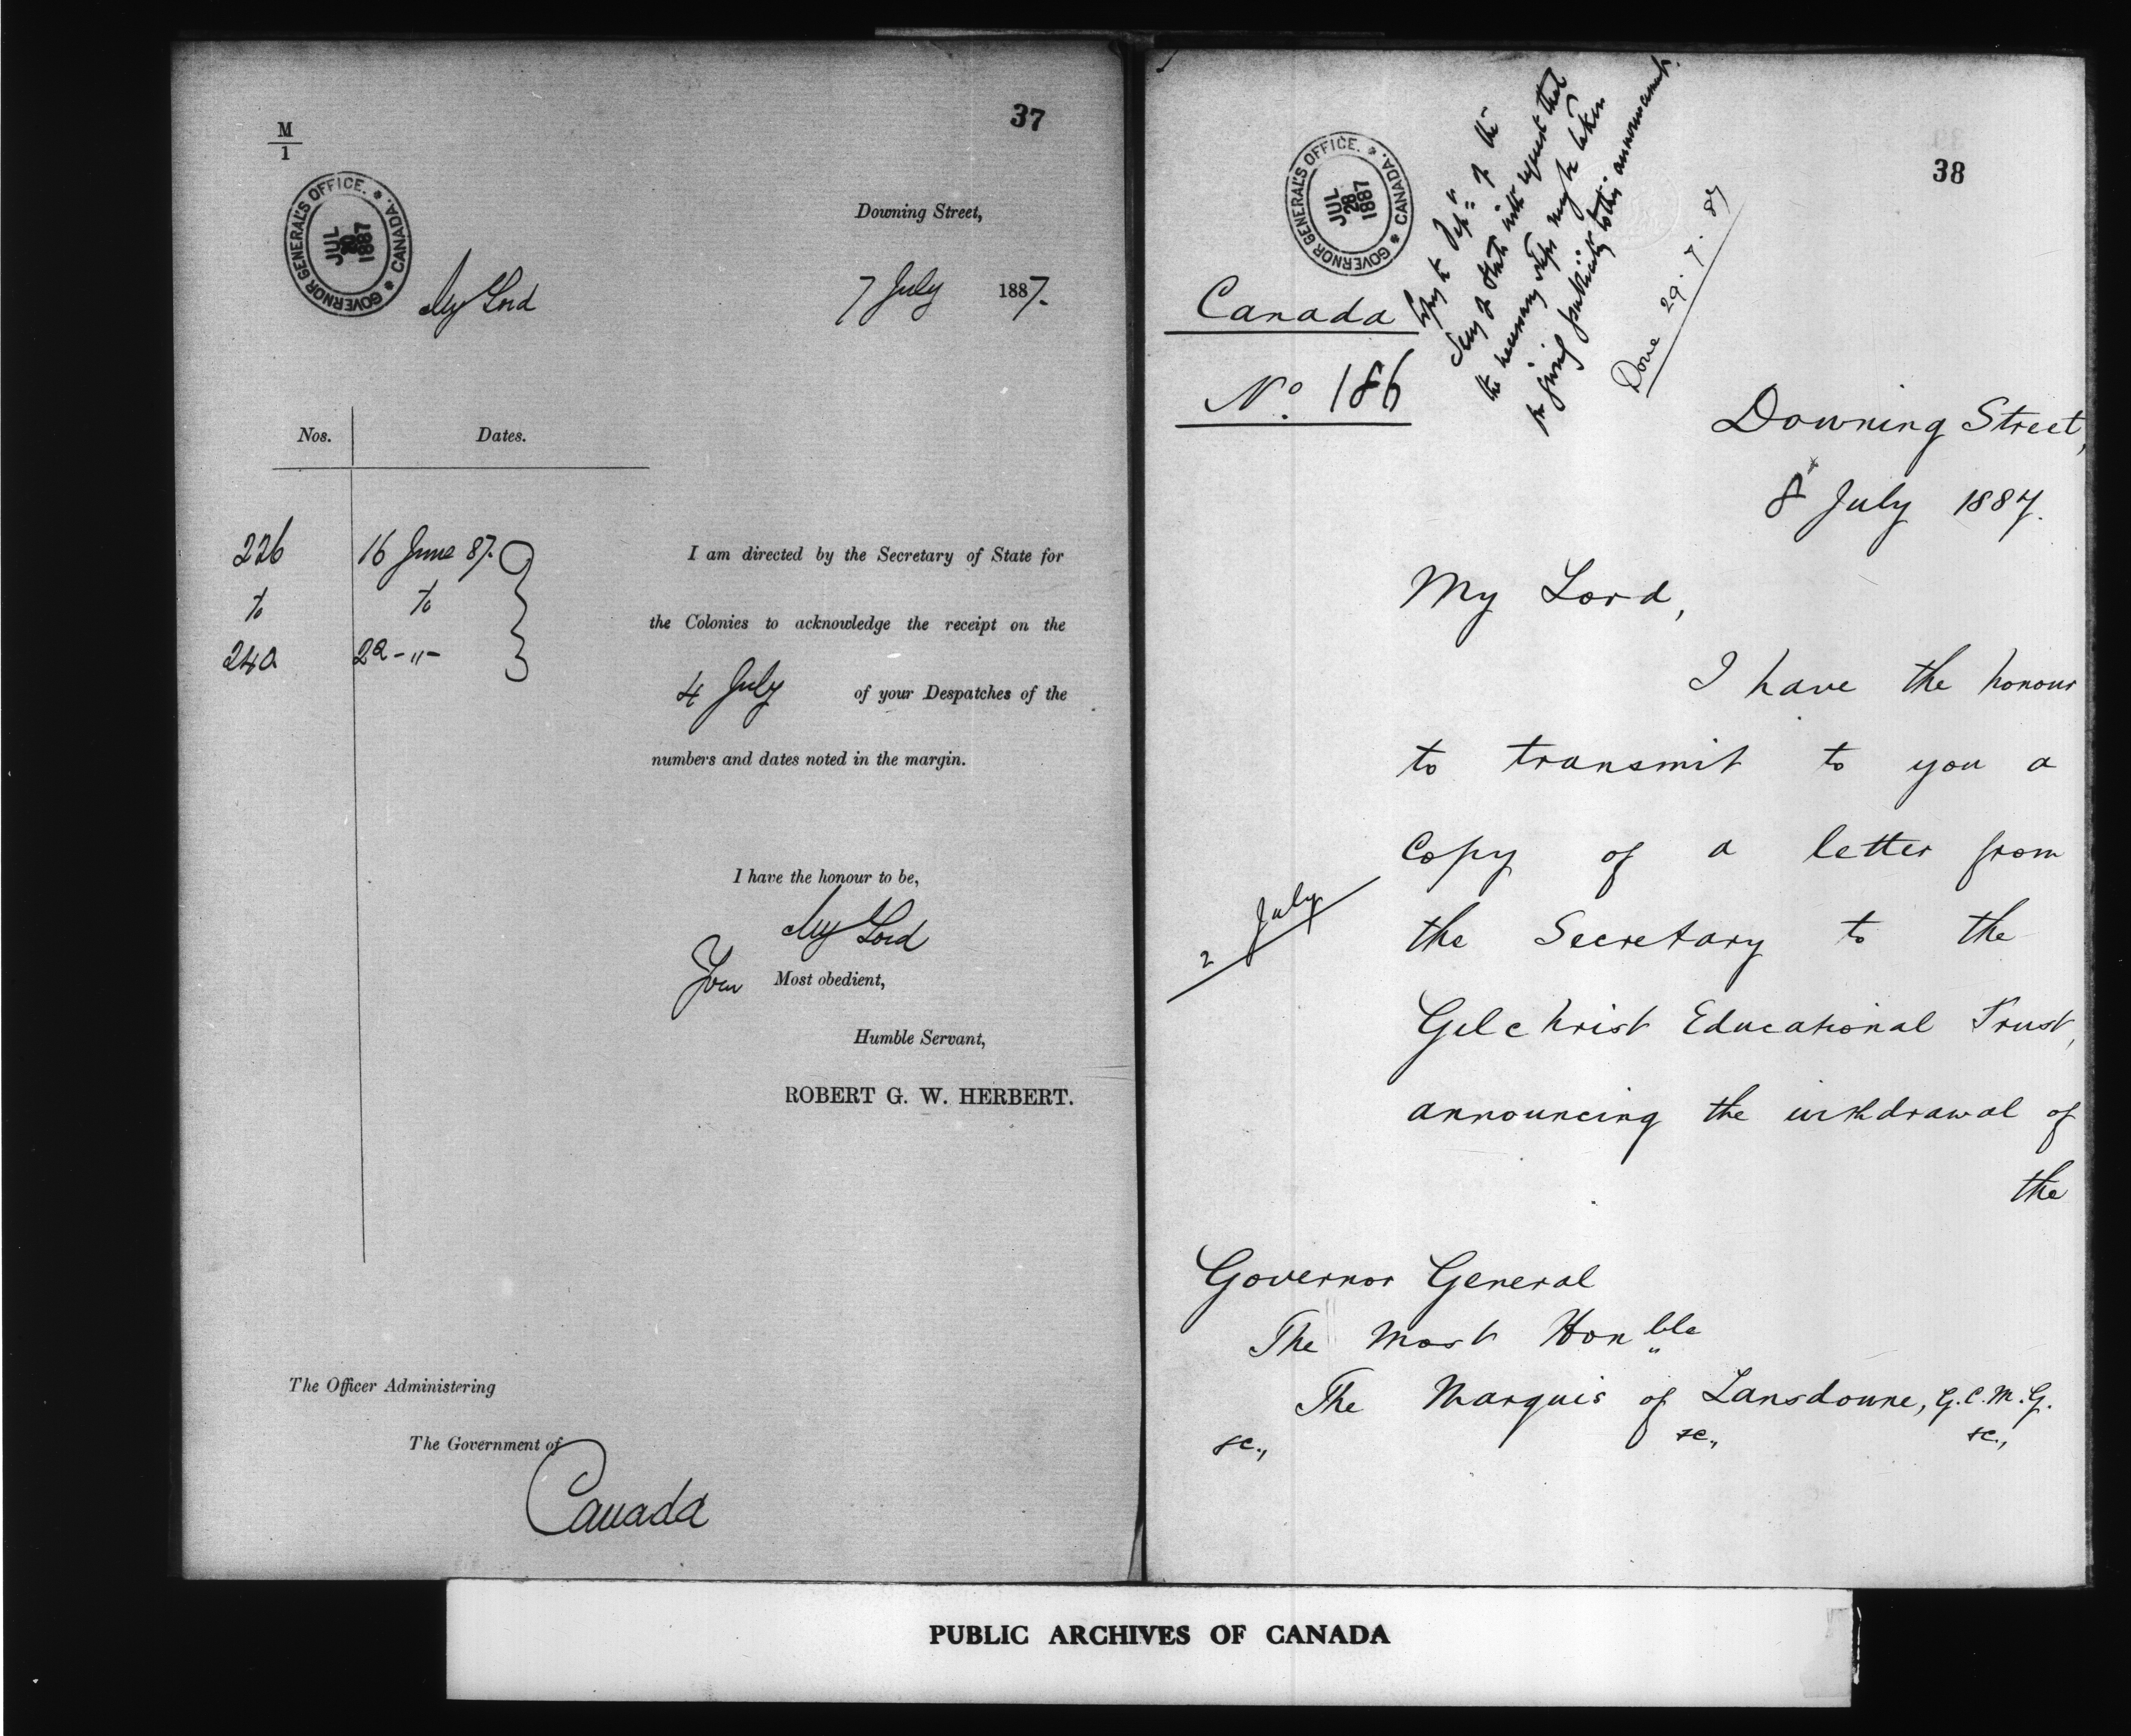 37
M
1
GOVERNOR GENERAL'S OFFICE. * CANADA. *
JUL
1887
Downing Street,
My Lord
7 July 1887.
Nos. Dates.
226 16 June 87.
to to
240 22 - " -
I am directed by the Secretary of State for
the Colonies to acknowledge the receipt on the
4 July of your Despatches of the
numbers and dates noted in the margin.
I have the honour to be,
My Lord
Your Most obedient,
Humble Servant,
ROBERT G. W. HERBERT.
The Officer Administering
The Government of
Canada
38
GOVERNOR GENERAL'S OFFICE. * CANADA. *
JUL
28
1887
Copy to Dep. of the
Secy of State with request that
the necessary steps may be taken
for giving publicity to this announcement.
Done 29.7.87
Canada
No. 186
Downing Street,
8 July 1887.
My Lord,
I have the honour
to transmit to you a
copy of a letter from
2 July
the Secretary to the
Gilchrist Educational Trust,
announcing the withdrawal of
the
Governor General
The Most Honble
The Marquis of Lansdowne, G.C.M.G.
&c., &c., &c.,
PUBLIC ARCHIVES OF CANADA